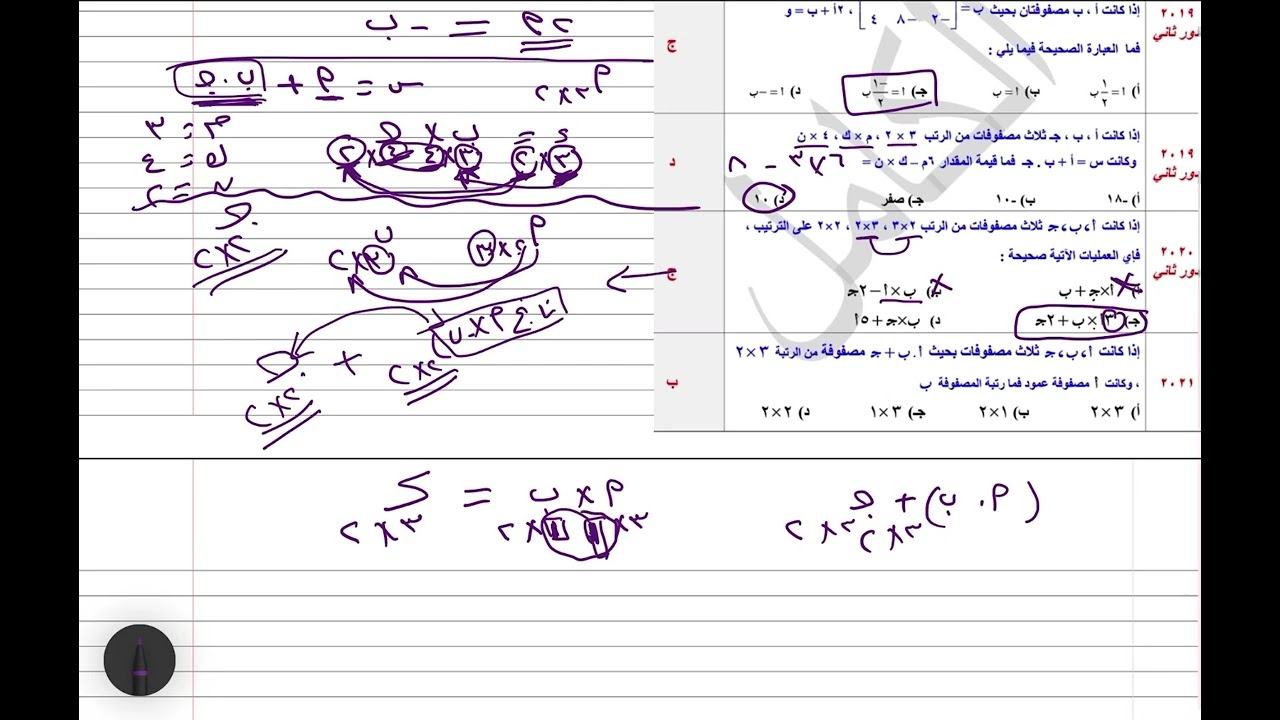 ٢٠١٩
دور ثاني
إذا كانت أ ، ب مصفوفتان بحيث ب = [ -٢ -٨ ٤ ] ، ٢أ + ب = و
فما العبارة الصحيحة فيما يلي :
أ) أ = ١/٢ ب ب) أ = ب جـ) أ = -١/٢ ب د) أ = -ب
ج
٢٠١٩
دور ثاني
إذا كانت أ ، ب ، جـ ثلاث مصفوفات من الرتب ٣ × ٢ ، م × ك ، ٤ × ن
وكانت س = أ + ب . جـ فما قيمة المقدار ٦م - ك × ن =
٦ × ٣ - ٨
أ) -١٨ ب) -١٠ جـ) صفر د) ١٠
د
٢٠٢٠
دور ثاني
إذا كانت أ، ب، جـ ثلاث مصفوفات من الرتب ٢×٣ ، ٣×٢ ، ٢×٢ على الترتيب ،
فإي العمليات الآتية صحيحة :
أ) أ×جـ + ب ب) ب×أ - ٢جـ
جـ) ٣أ × ب + ٢جـ د) ب×جـ + ٥أ
ج
٢٠٢١
إذا كانت أ، ب، جـ ثلاث مصفوفات بحيث أ . ب + جـ مصفوفة من الرتبة ٣ × ٢
، وكانت أ مصفوفة عمود فما رتبة المصفوفة ب
أ) ٣ × ٢ ب) ١ × ٢ جـ) ٣ × ١ د) ٢ × ٢
ب
٢أ = - ب
س = أ + ب . جـ
أ ٣×٢
م = ٣
ك = ٤
ن = ٢
٣×٢ = ٣×٤ × ٤×٢
جـ
٢×٢
أ ٢×٣ ب ٣×٢
٣أ × ب
٢×٢ + جـ
٢×٢
(أ . ب) + جـ
٣×٢ ٣×٢
أ × ب = ك
٣×١ ١×٢ ٣×٢